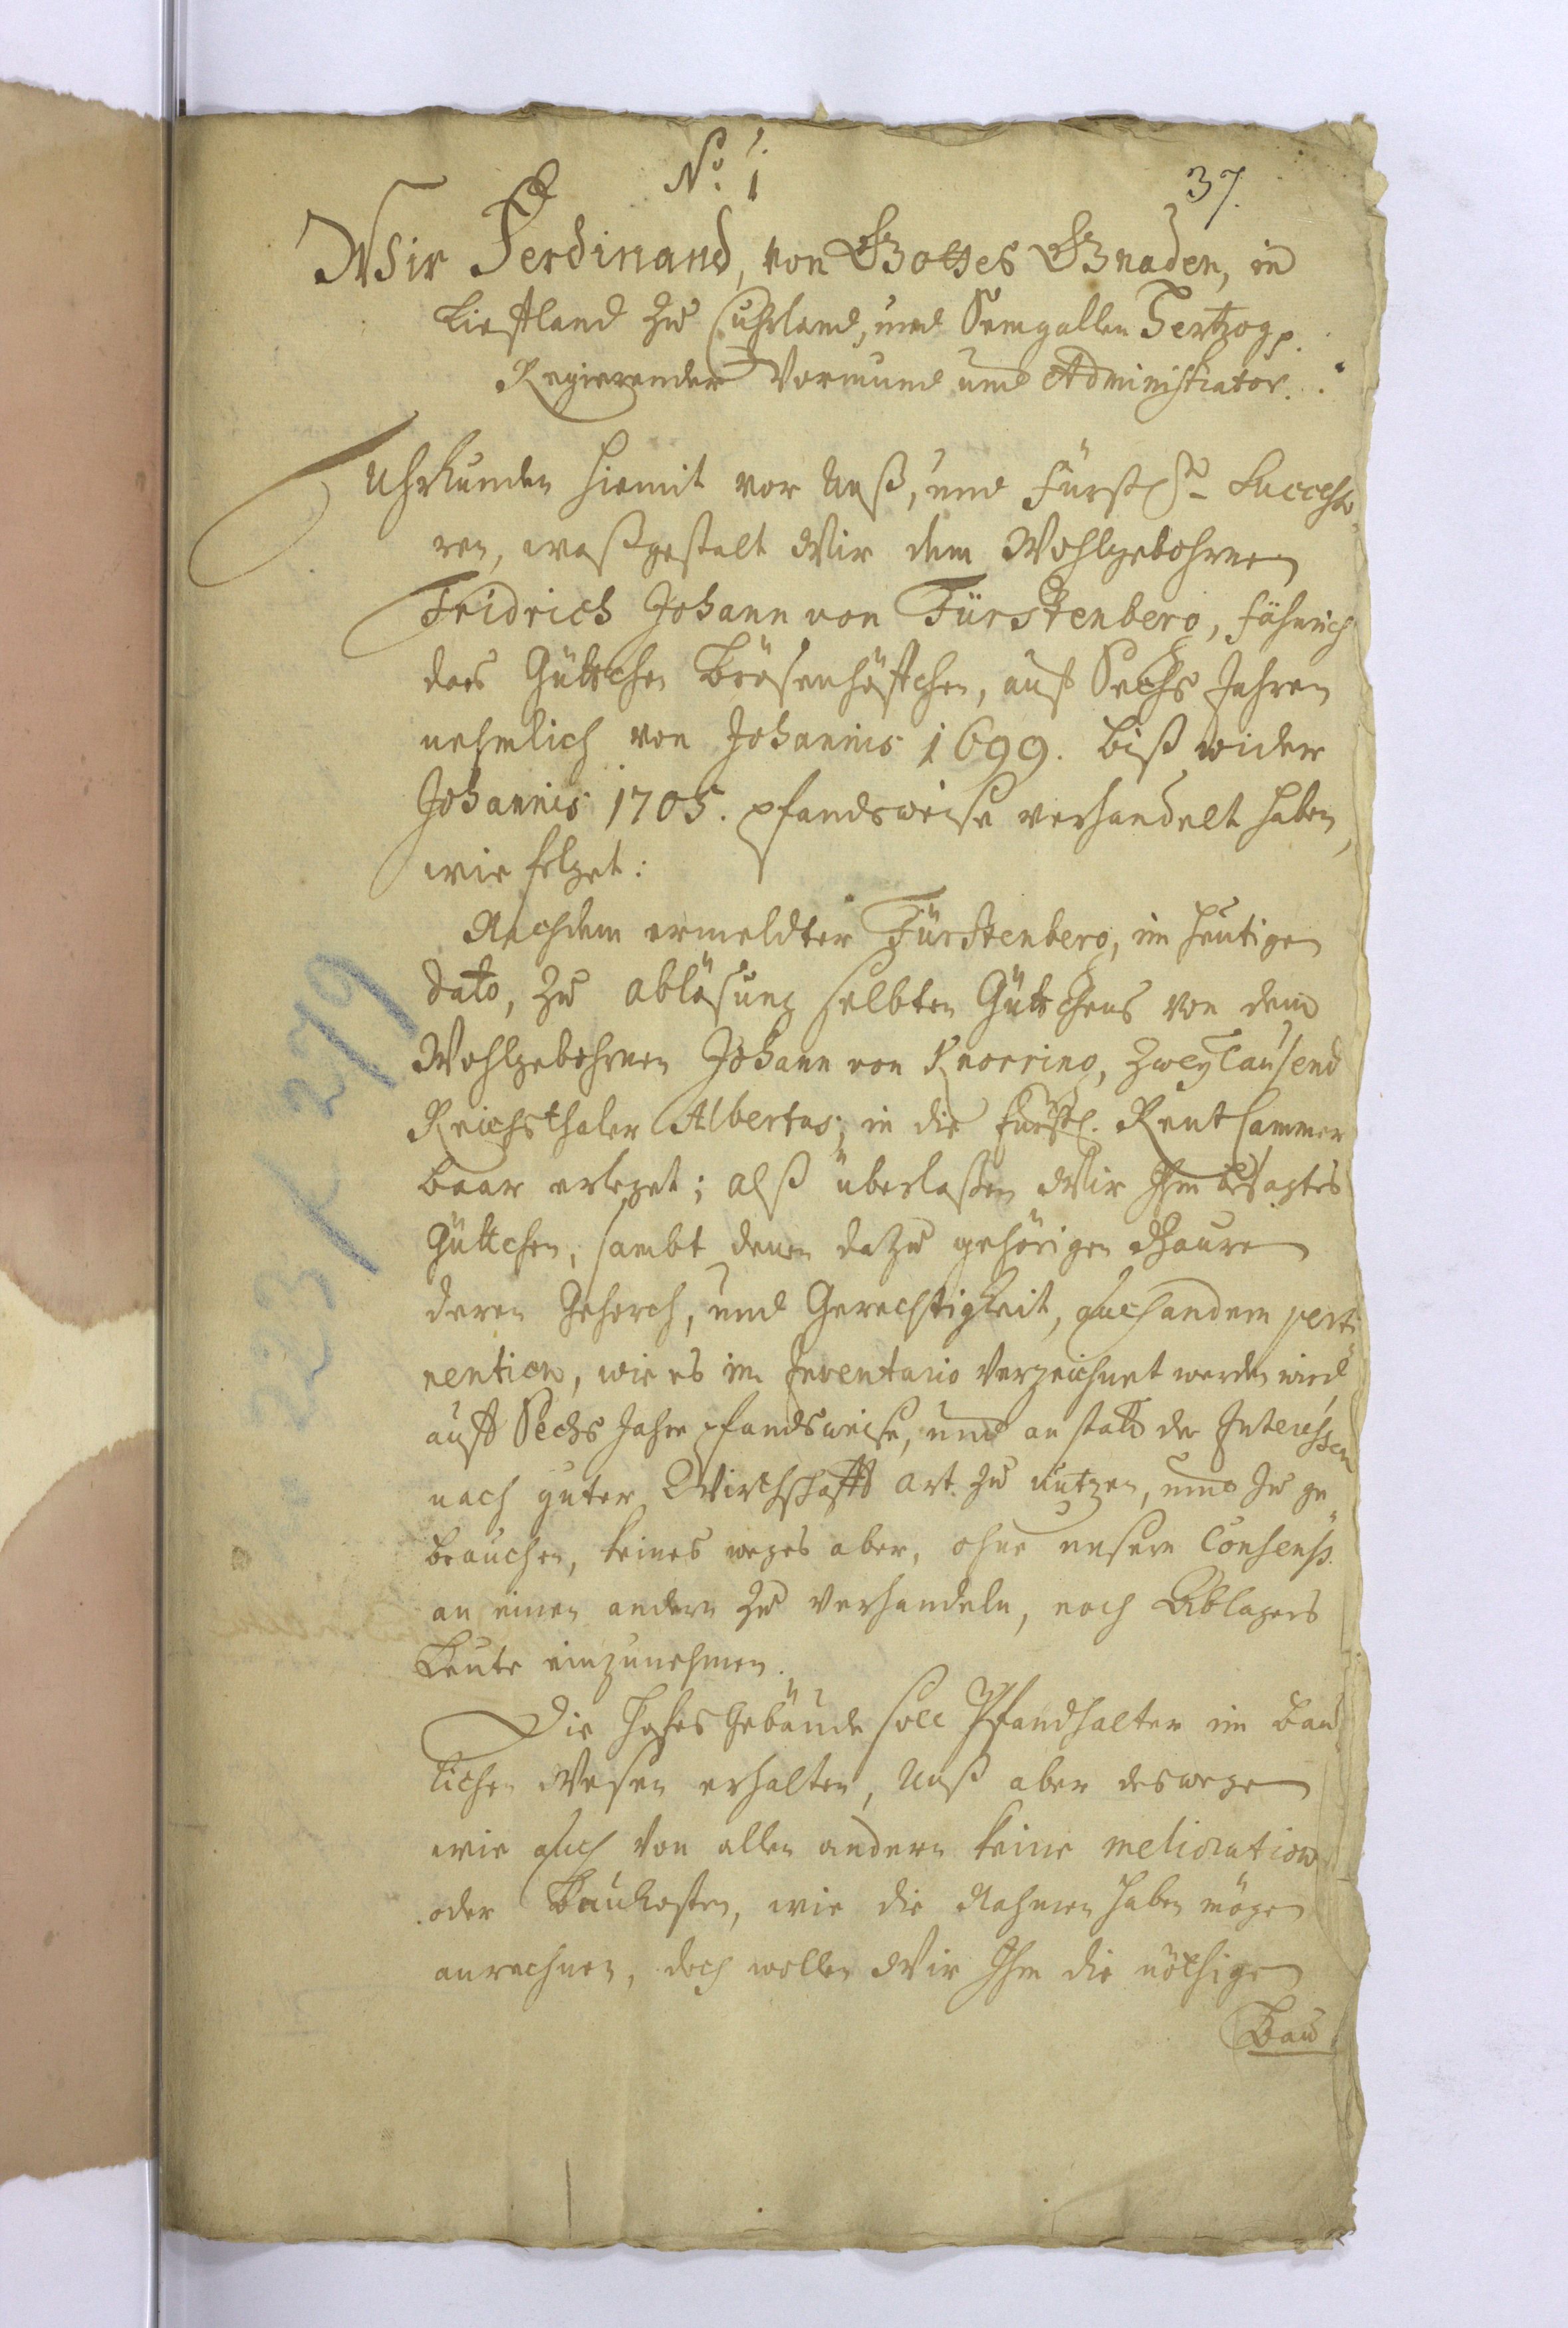 No. 1.
37.
Wir Ferdinand, von Gottes Gnaden, in
Liefland zu Cuhrland, und Semgallen Hertzog p.
Regierender Vormund und Administrator.
Uhrkunden hiemit vor Unß, und Fürstl. Successo
ren, waßgestalt Wir dem Wohlgebohrnen
Fridrich Johann von Fürstenberg, Fähnrich
das Güttchen Brösenhöffchen, auf Sechs Jahren
nehmlich von Johannis 1699. biß wider
Johannis 1705. pfandsweise verhandelt haben,
wie folget:
Nachdem ermeldter Fürstenberg, im heutigen
dato, zu ablösung selbten Güttchens von dem
Wohlgebohrnen Johann von Knorring, Zwey Tausend
Reichsthaler Albertus, in die Fürstl. Rent Cammer
baar erleget; alß überlaßen Wir Ihm besagtes
Güttchen, sambt denen dazu gehörigen Bauren
deren Gehorch, und Gerechtigkeit, auch andern perti
nention, wie es im Inventario verzeichnet werden wird
auff Sechs Jahre pfandsweise, und an statt der Interessen
nach guter Wirthschafft art zu nutzen, und zu ge
brauchen, keines weges aber, ohne unsern Consens
an einen andern zu verhandeln, noch Ablagers
Leute einzunehmen.
Die Hofes Gebäude soll Pfandhalter im bau
lichen Wesen erhalten, Unß aber deswegen
wie auch von allen andern keine melioration
oder Baukosten, wie die Nahmen haben mögen
anrechnen, doch wollen Wir Ihm die nöthige
Bau
223/279